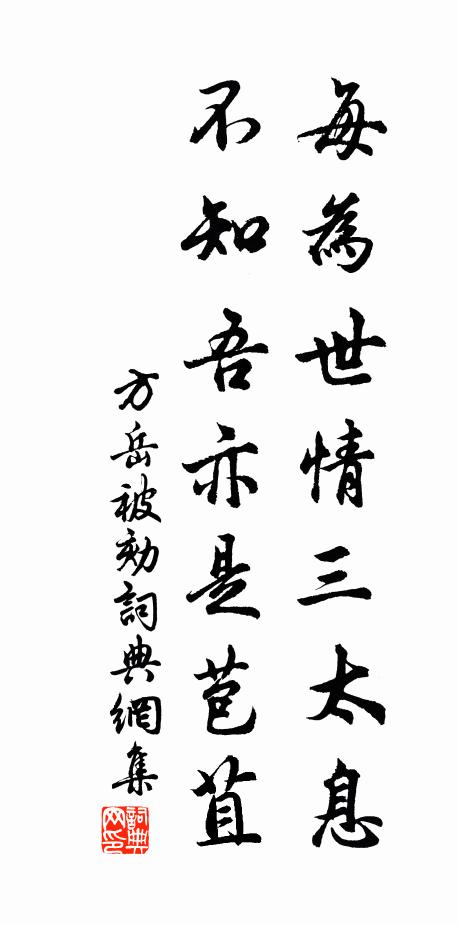 每為世情三太息
不知吾亦是苞苴
方岳被劾詞典網集
詞典网印